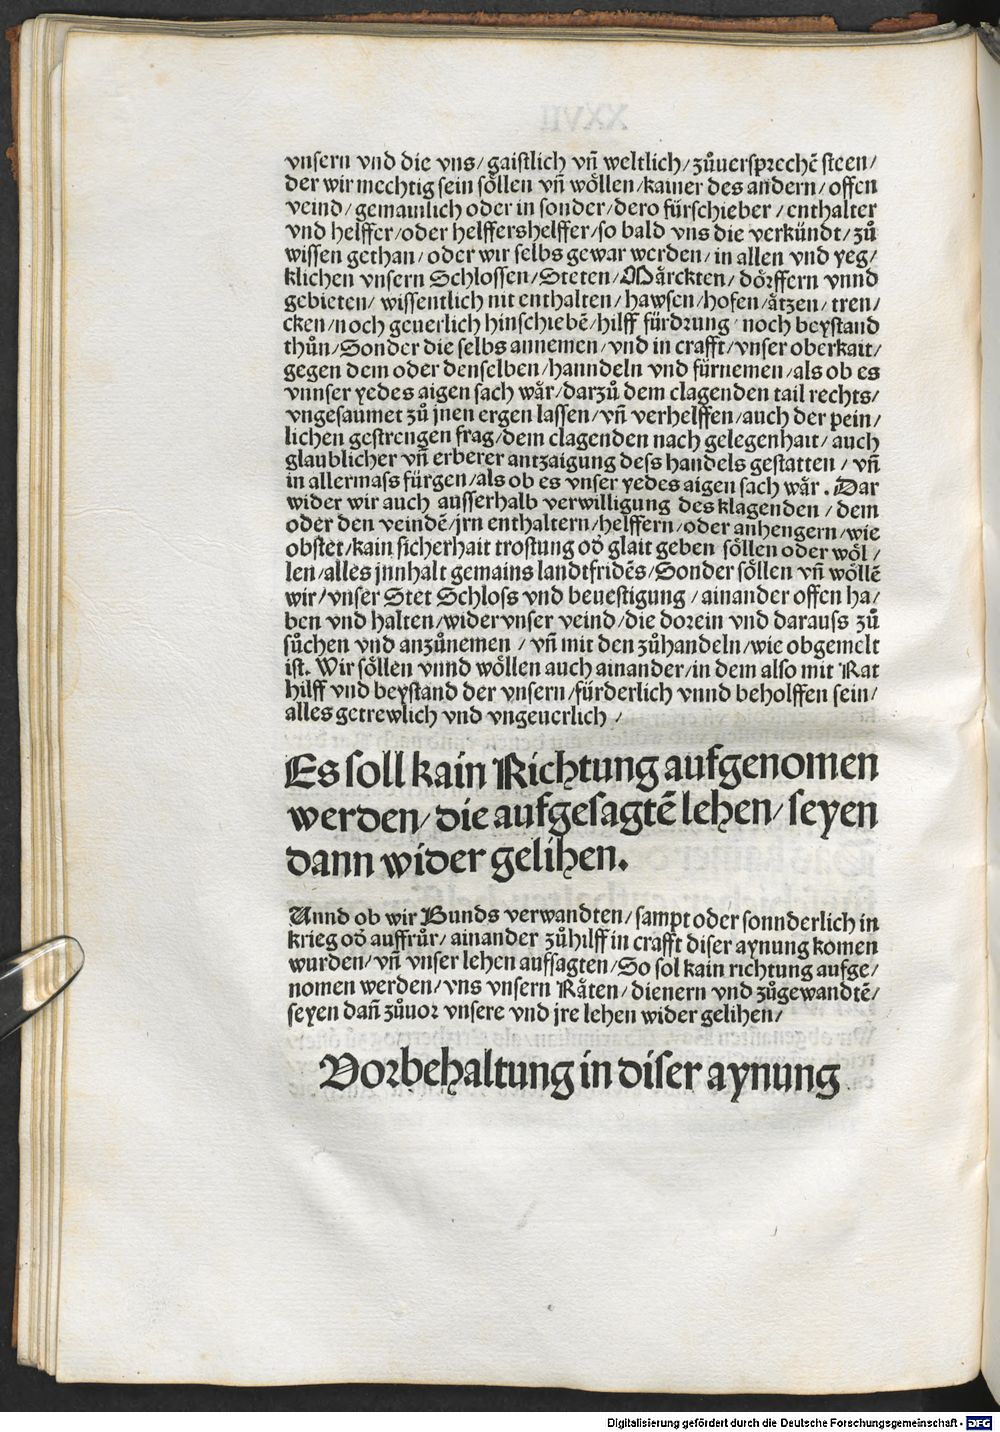 vnsern vnd die vns/ gaistlich vn̄ weltlich/ zůuersprechē steen/
der wir mechtig sein söllen vn̄ wöllen/ kainer des andern/ offen
veind/ gemainlich oder in sonder/ dero fürschieber/ enthalter
vnd helffer/ oder helffershelffer/ so bald vns die verkündt/ zů
wissen gethan/ oder wir selbs gewar werden/ in allen vnd yeg/
klichen vnsern Schlossen/ Steten/ Märckten/ dörffern vnnd
gebieten/ wissentlich nit enthalten/ hawsen/ hofen/ ätzen/ tren/
cken/ noch geuerlich hinschiebē/ hilff fürdrung noch beystand
thůn/ Sonder die selbs annemen/ vnd in crafft/ vnser oberkait/
gegen dem oder denselben/ hanndeln vnd fürnemen/ als ob es
vnnser yedes aigen sach wår/ darzů dem clagenden tail rechts/
vngesaumet zů jnen ergen lassen/ vn̄ verhelffen/ auch der pein/
lichen gestrengen frag/ dem clagenden nach gelegenhait/ auch
glaublicher vn̄ erberer antzaigung dess handels gestatten/ vn̄
in allermass fürgen/ als ob es vnser yedes aigen sach wår. Dar
wider wir auch ausserhalb verwilligung des klagenden/ dem
oder den veindē/ jrn enthaltern/ helffern/ oder anhengern/ wie
obstet/ kain sicherhait trostung od̄ glait geben söllen oder wöl/
len/ alles jnnhalt gemains landtfridēs/ Sonder söllen vn̄ wöllē
wir/ vnser Stet Schloss vnd beuestigung/ ainander offen ha/
ben vnd halten/ wider vnser veind/ die dorein vnd darauss zů
sůchen vnd anzůnemen/ vn̄ mit den zůhandeln/ wie obgemelt
ist. Wir söllen vnnd wöllen auch ainander/ in dem also mit Rat
hilff vnd beystand der vnsern/ fürderlich vnnd beholffen sein/
alles getrewlich vnd vngeuerlich/
Es soll kain Richtung aufgenomen
werden/ die aufgesagtē lehen/ seyen
dann wider gelihen.
Vnnd ob wir Bunds verwandten/ sampt oder sonnderlich in
krieg od̄ auffrůr/ ainander zůhilff in crafft diser aynung komen
wurden/ vn̄ vnser lehen auffsagten/ So sol kain richtung aufge/
nomen werden/ vns vnsern Råten/ dienern vnd zůgewandtē/
seyen dan̄ zůuor vnsere vnd jre lehen wider gelihen/
Vorbehaltung in diser aynung
Digitalisierung gefördert durch die Deutsche Forschungsgemeinschaft - DFG